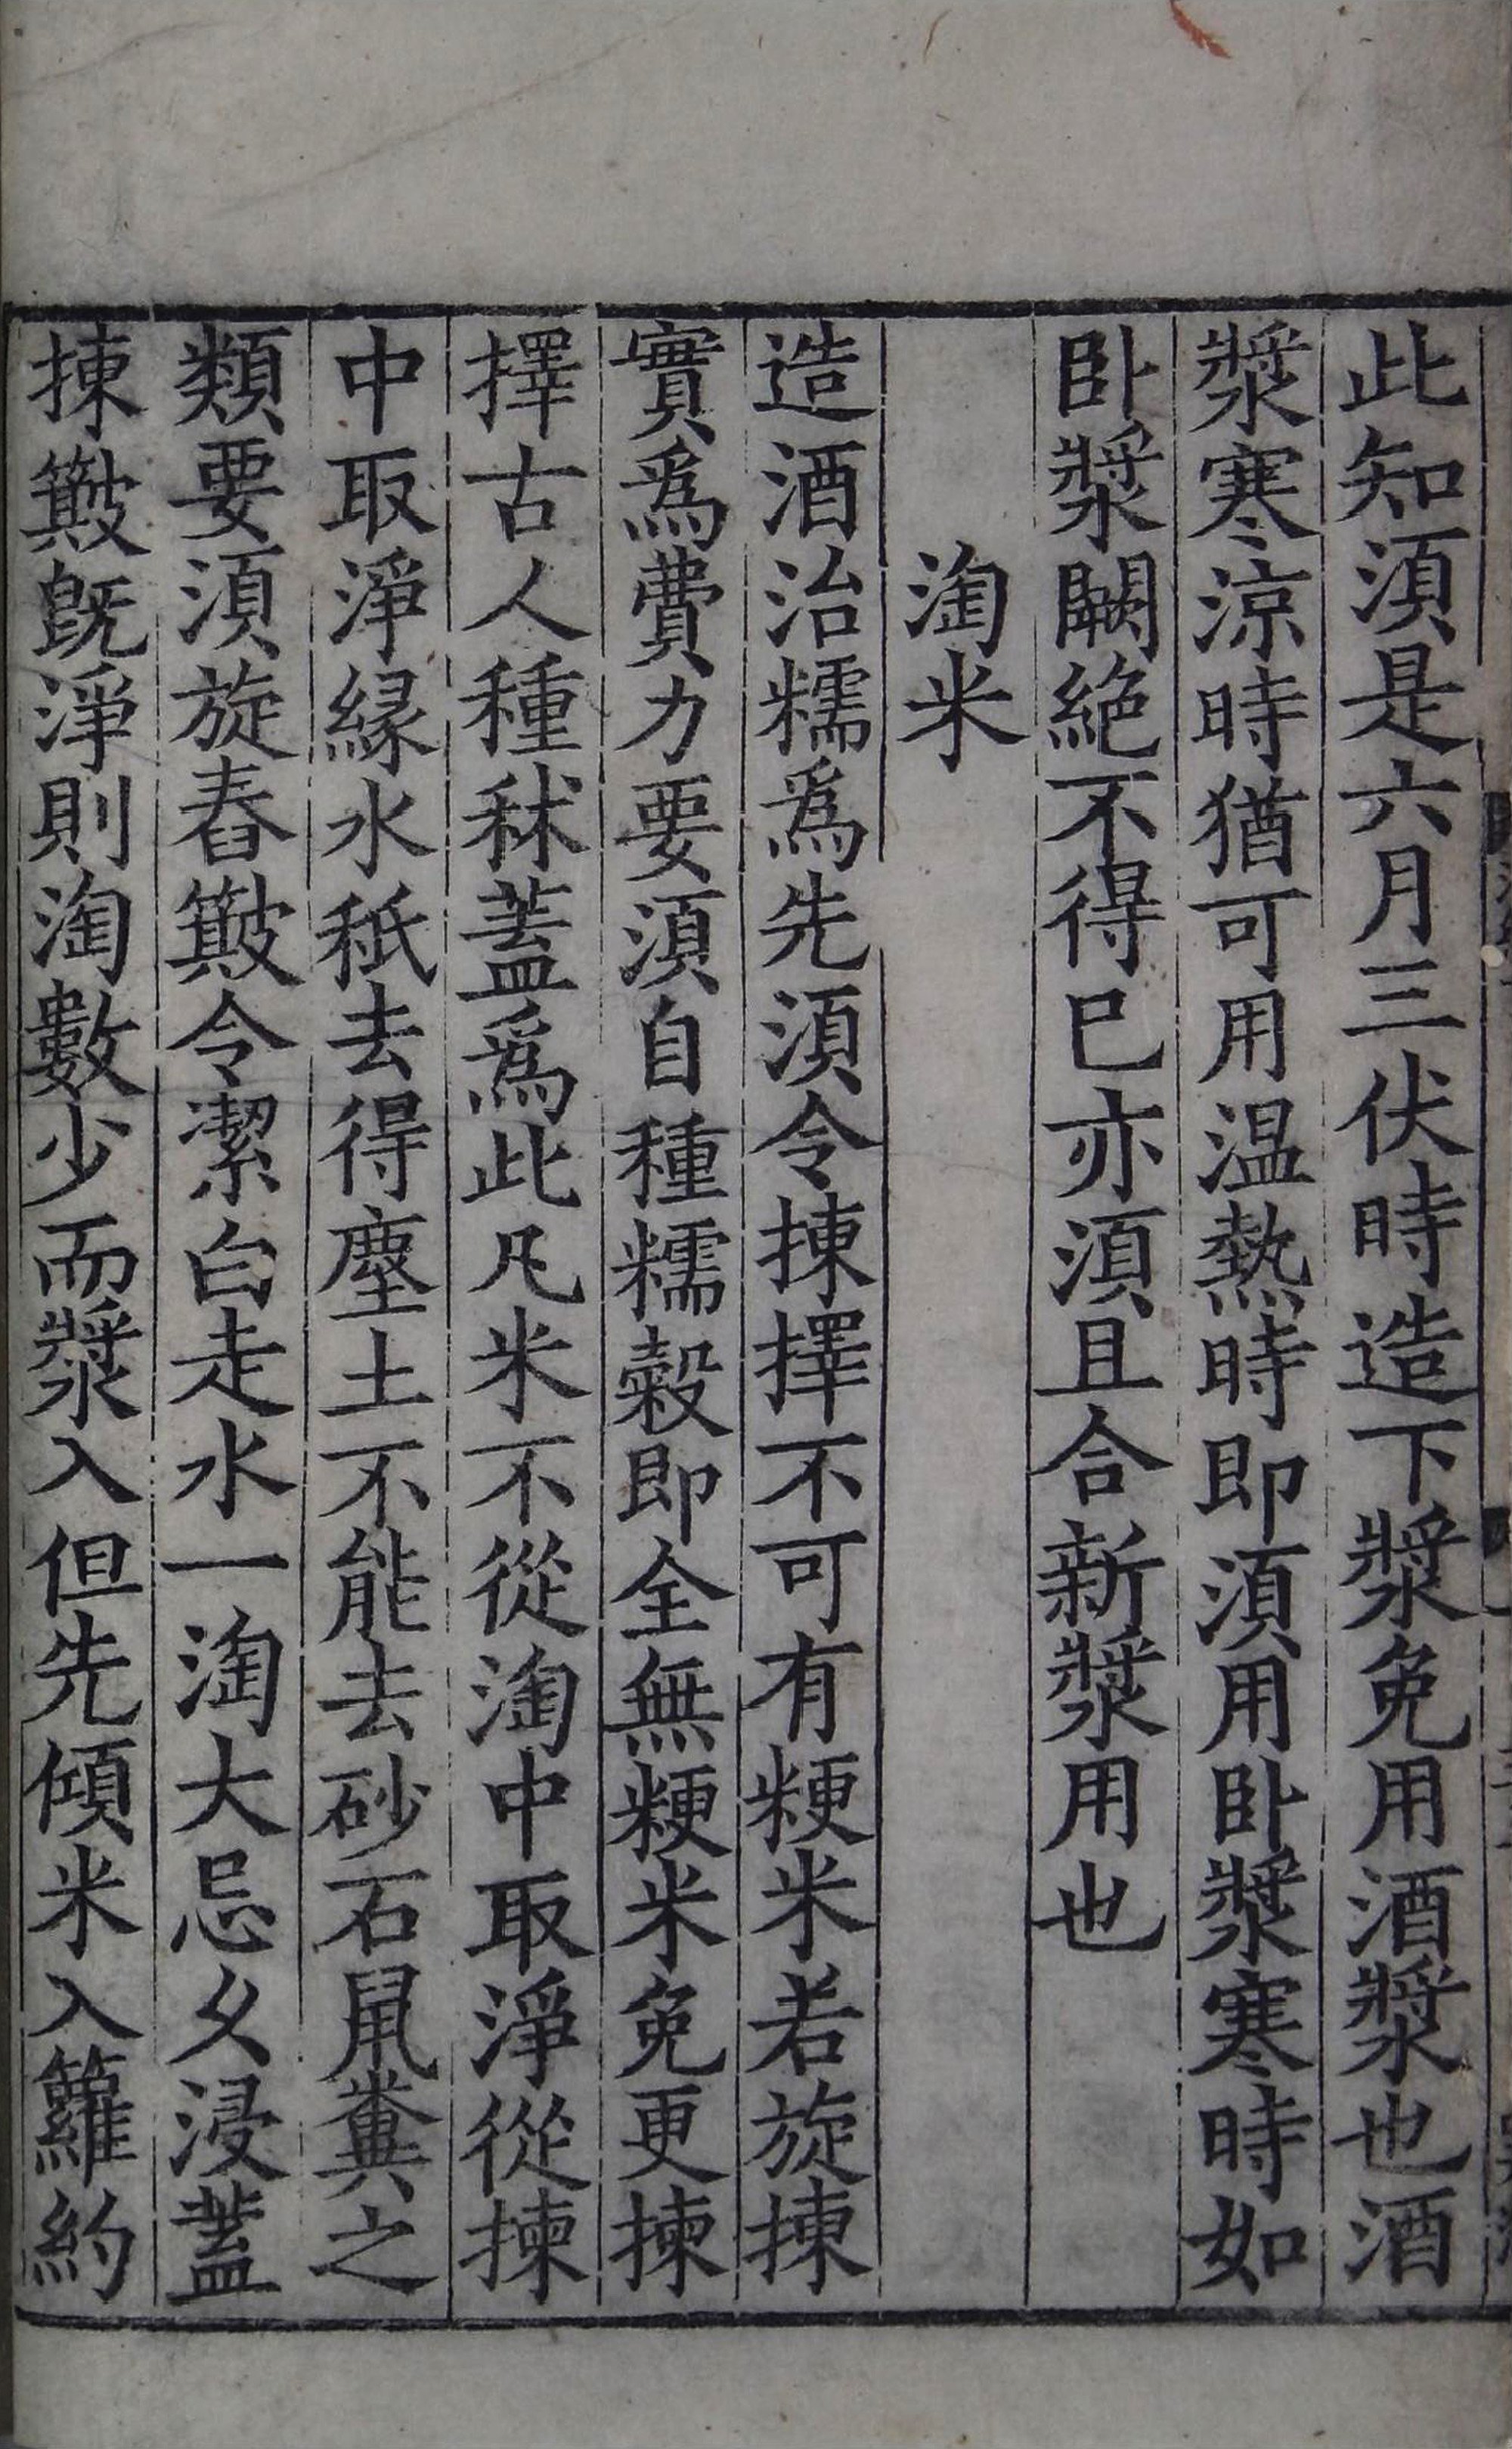 此知須是六月三伏時造下漿免用酒漿也酒
漿寒涼時猶可用温熱時即須用卧漿寒時如
卧漿闕絶不得已亦須且合新漿用也
淘米
造酒治糯爲先須令揀擇不可有粳米若旋揀
實爲費力要須自種糯穀即全無粳米免更揀
擇古人種秫蓋爲此凡米不從淘中取淨從揀
中取淨緣水秖去得塵土不能去砂石䑕糞之
類要須旋舂簸令潔白走水一淘大忌乆浸蓋
揀簸旣淨則淘數少而漿入但先傾米入籮約